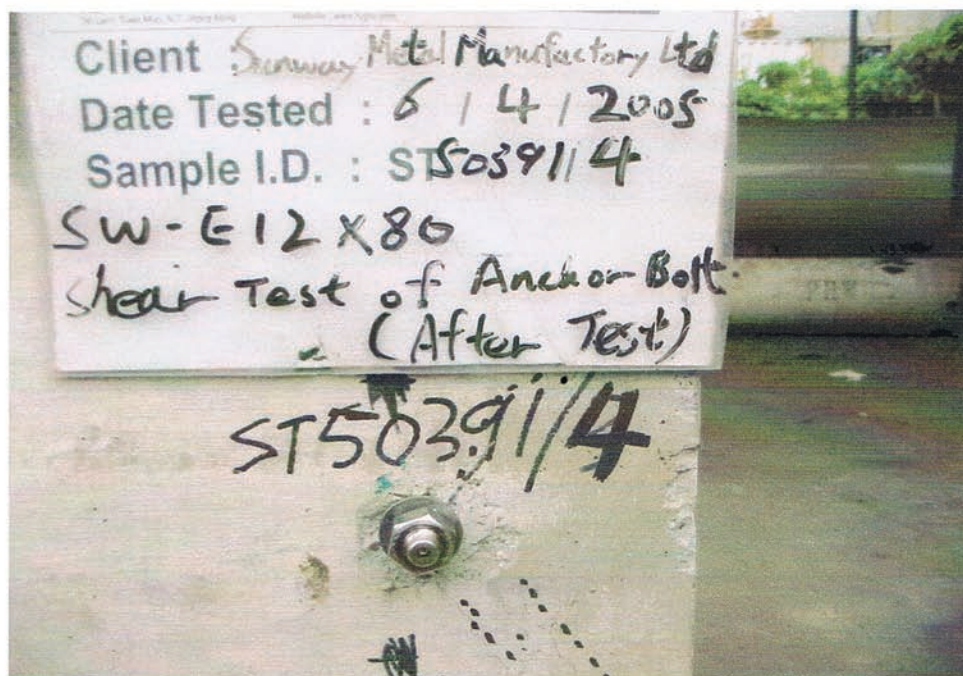 Client : Sunway Metal Manufactory Ltd
Date Tested : 6 / 4 / 2005
Sample I.D. : ST50391/4
SW-E12X80
Shear Test of Anchor Bolt.
(After Test)
ST50391/4